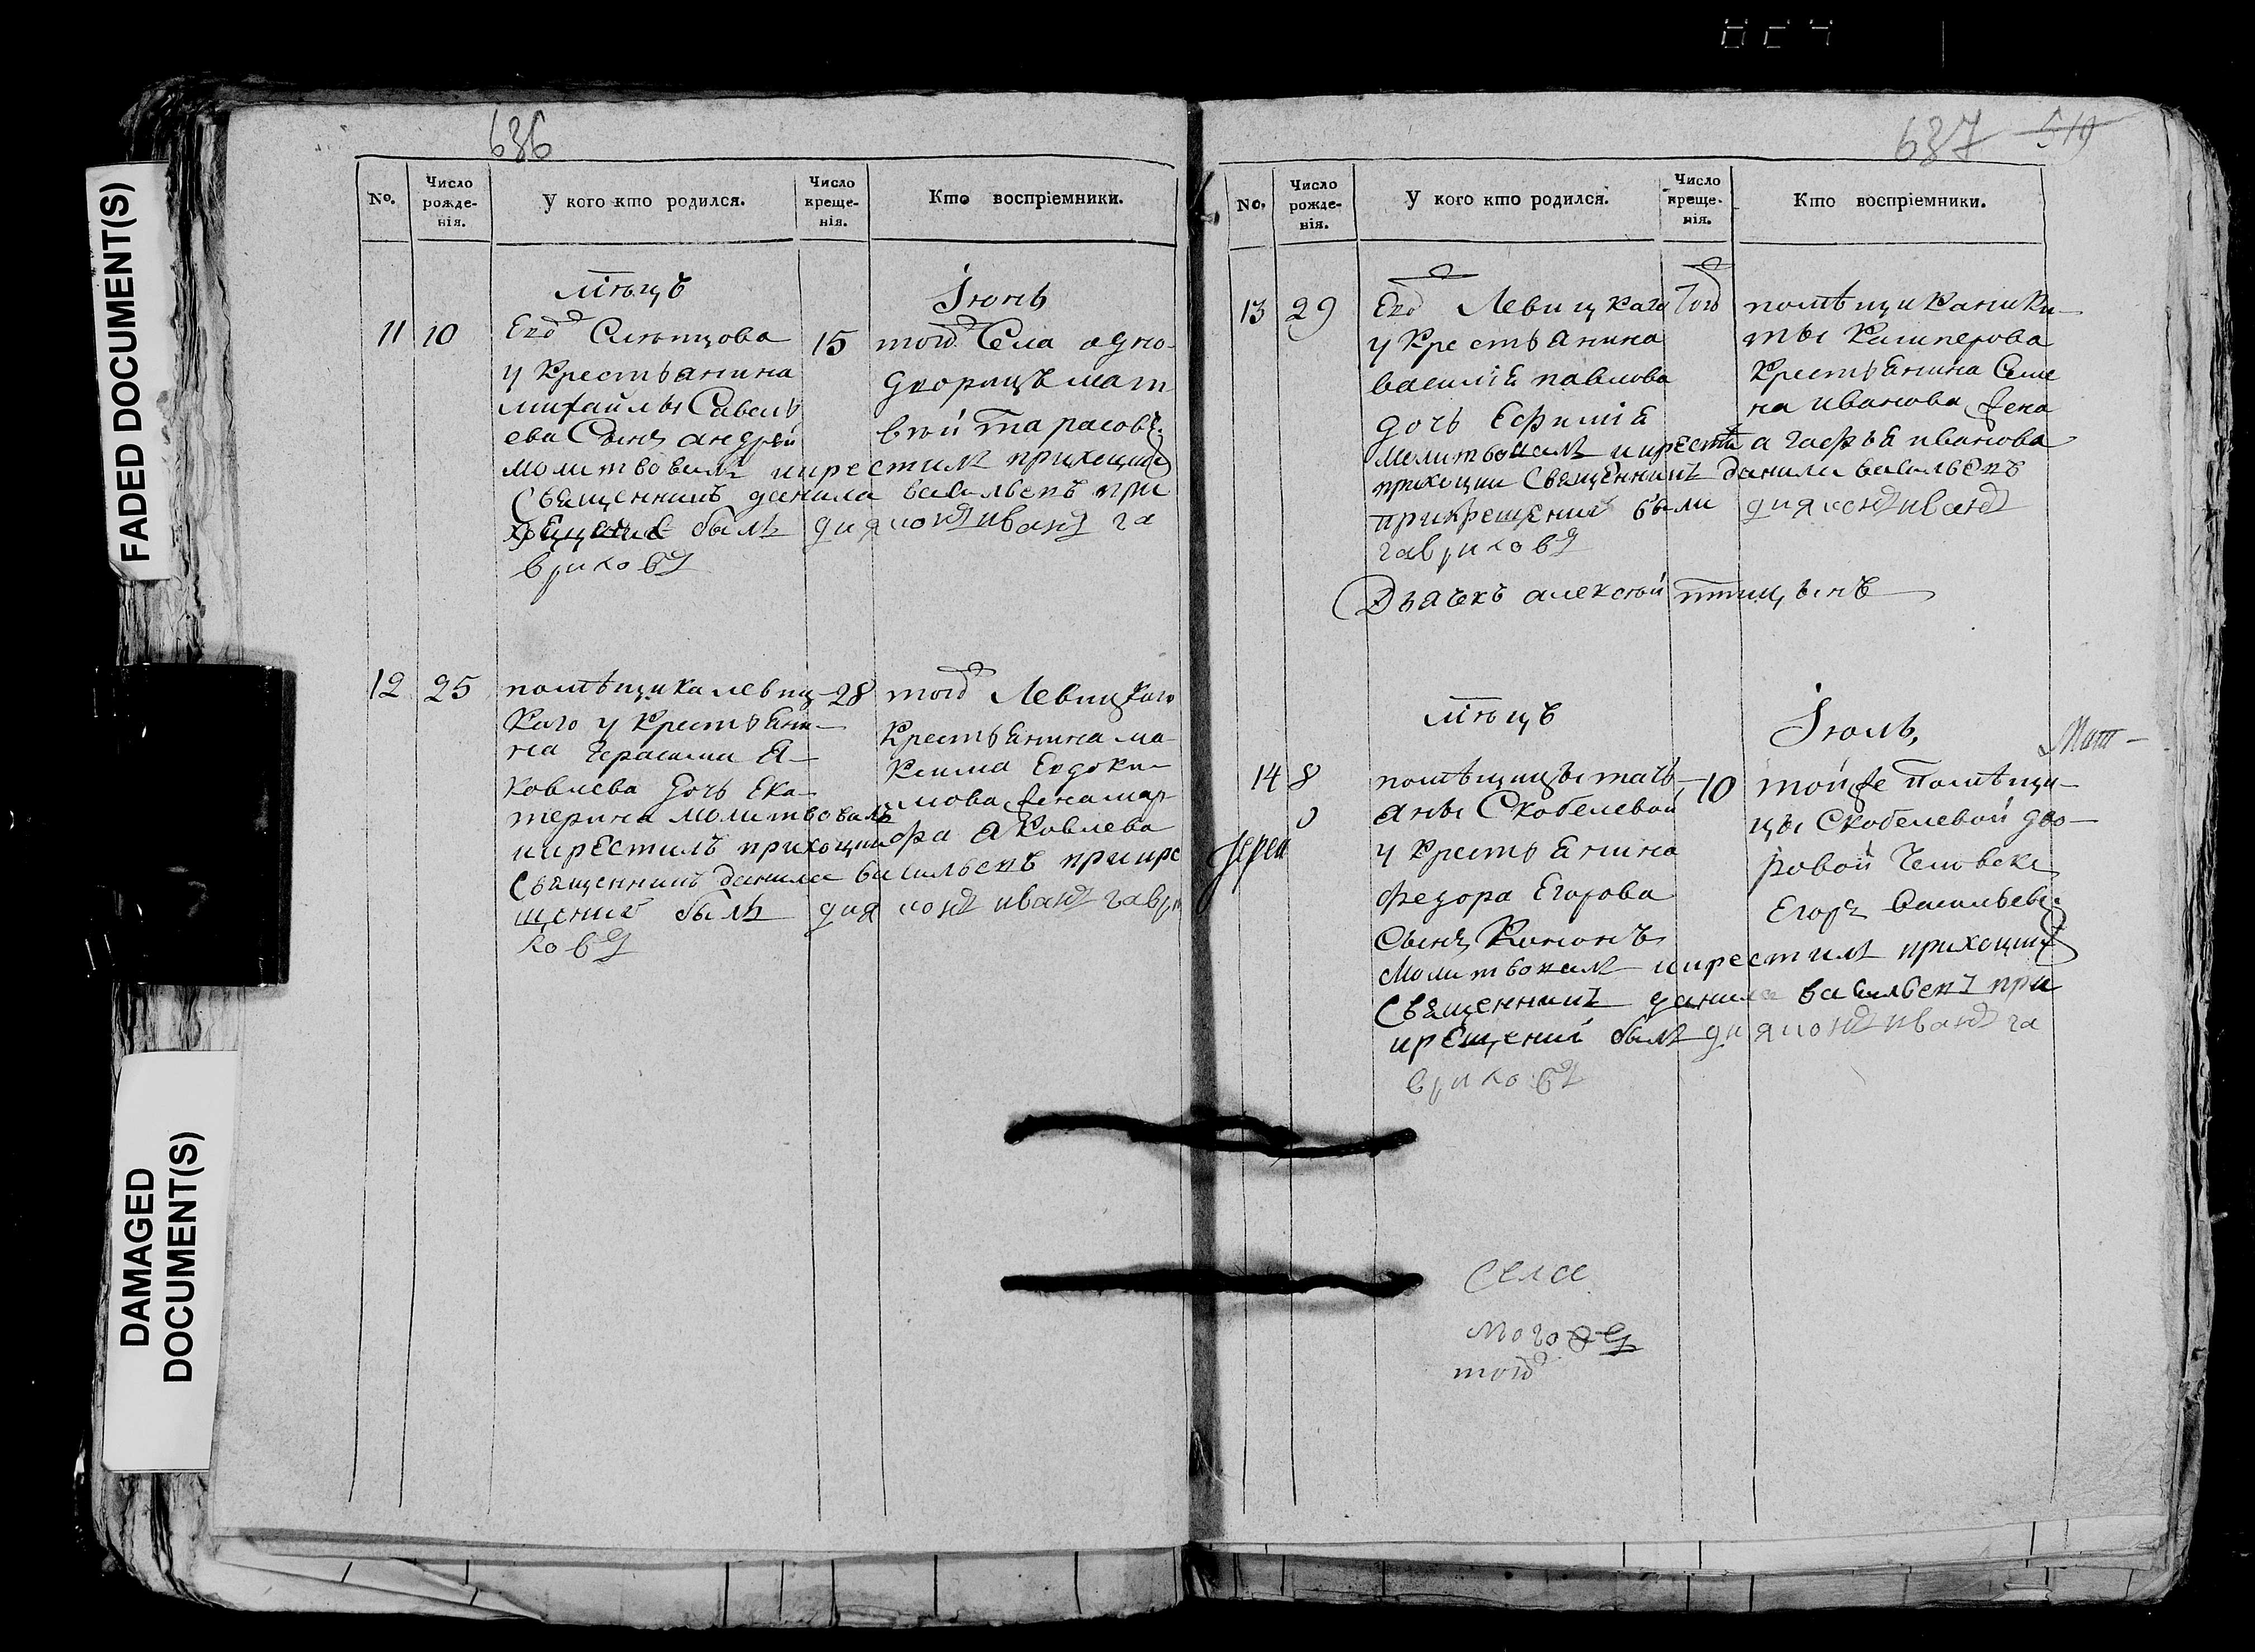 FADED DOCUMENT(S)
DAMAGED
DOCUMENT(S)
686
No.
Число
рожде-
нія.
У кого кто родился.
Число
креще-
нія.
Кто воспріемники.
мѣцъ
Іюнь
11 10
Слѣпцова
у крестьянина
михайлы Савель
ева Сынъ андрѣй
молитвовалъ икрестилъ приходции
Священникъ данила васильевъ при
былъ диячокъ иванъ га
вриловъ
15
Села одно-
дворицъ мат
вѣй тарасовъ
12 25
помѣщика левиц
каго у крестьяни-
на Герасима Я-
ковлева дочь Ека-
терина молитвовалъ
икрестилъ приходции
Священникъ данила васильевъ прикре
щении былъ диячокъ иванъ гаври
ловъ
28
Левицкаго
крестьянина ма
ксима Евдоки-
мова жена мар
фа Яковлева
687 519
No.
Число
рожде-
нія.
У кого кто родился.
Число
креще-
нія.
Кто воспріемники.
13 29
Левицкаго
у крестьянина
василія павлова
дочь Ефимія
молитвовалъ икрести
приходции Священникъ данила васильевъ
прикрещении были диячокъ иванъ
гавриловъ
помѣщика ники-
ты
крестьянина Семе
на иванова жена
агафья иванова
Дьячекъ алексѣй птицынъ
мѣцъ
Іюль,
14 8
помѣщицы тать
яны Скобелевой
у крестьянина
федора Егорова
Сынъ
молитвовалъ икрестилъ приходции
Священникъ данила васильевъ при
крещении былъ диячокъ иванъ га
вриловъ
10
тойже помѣщи-
цы Скобелевой дво-
ровой человекъ
Егоръ Васильевъ
Села